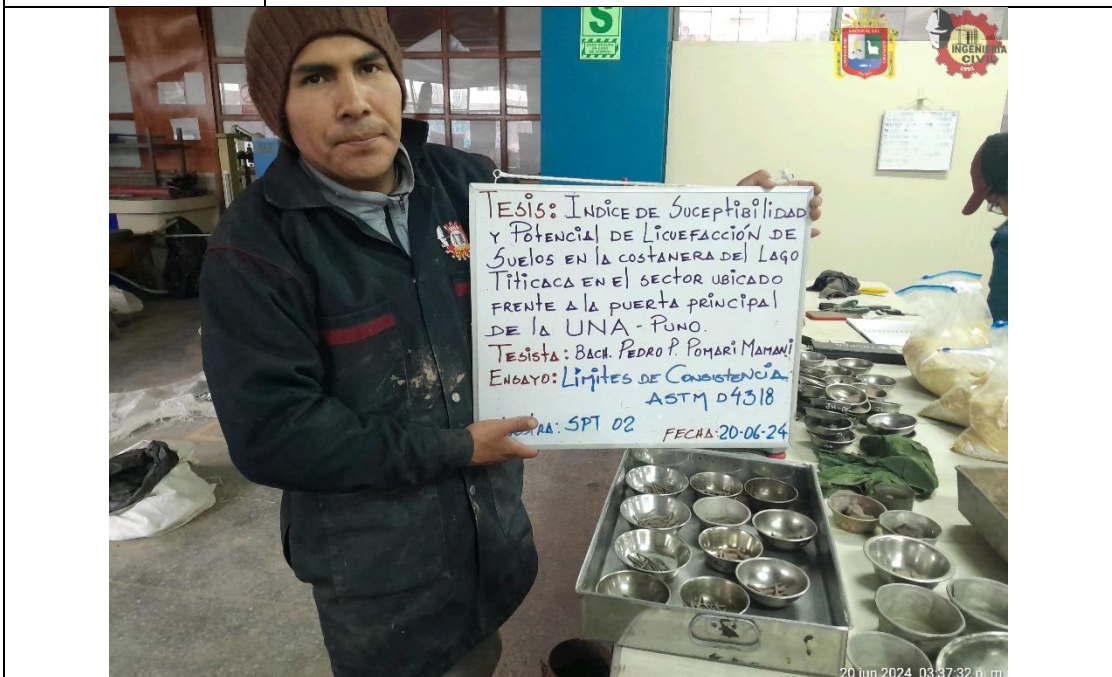 S
INGENIERÍA
CIVIL
TESIS: INDICE DE SUCEPTIBILIDAD
Y POTENCIAL DE LICUEFACCIÓN DE
SUELOS EN LA COSTANERA DEL LAGO
TITICACA EN EL SECTOR UBICADO
FRENTE A LA PUERTA PRINCIPAL
DE LA UNA - PUNO.
TESISTA: BACH. PEDRO P. POMARI MAMANI
ENSAYO: LÍMITES DE CONSISTENCIA
ASTM D4318
SPT 02 FECHA: 20-06-24
20 jun 2024 03:37:32 p. m.